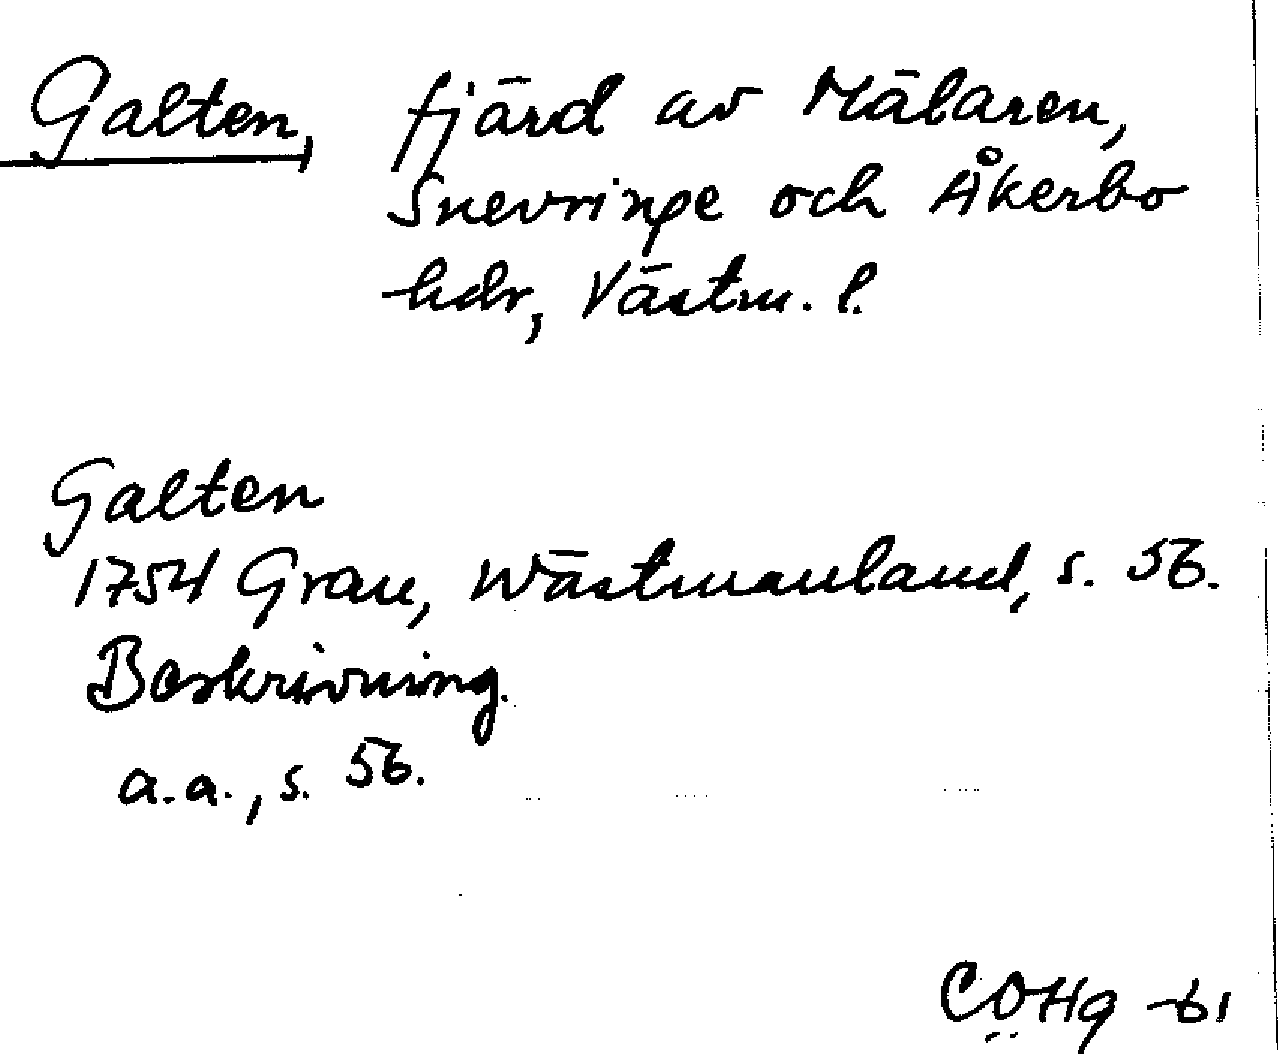 Galten, fjärd av Mälaren,
Snevringe och Åkerbo
hdr, Västm. l.
Galten
1754 Grau, Wästmanland, s. 56.
Beskrivning.
a.a., s. 56.
COHg -61